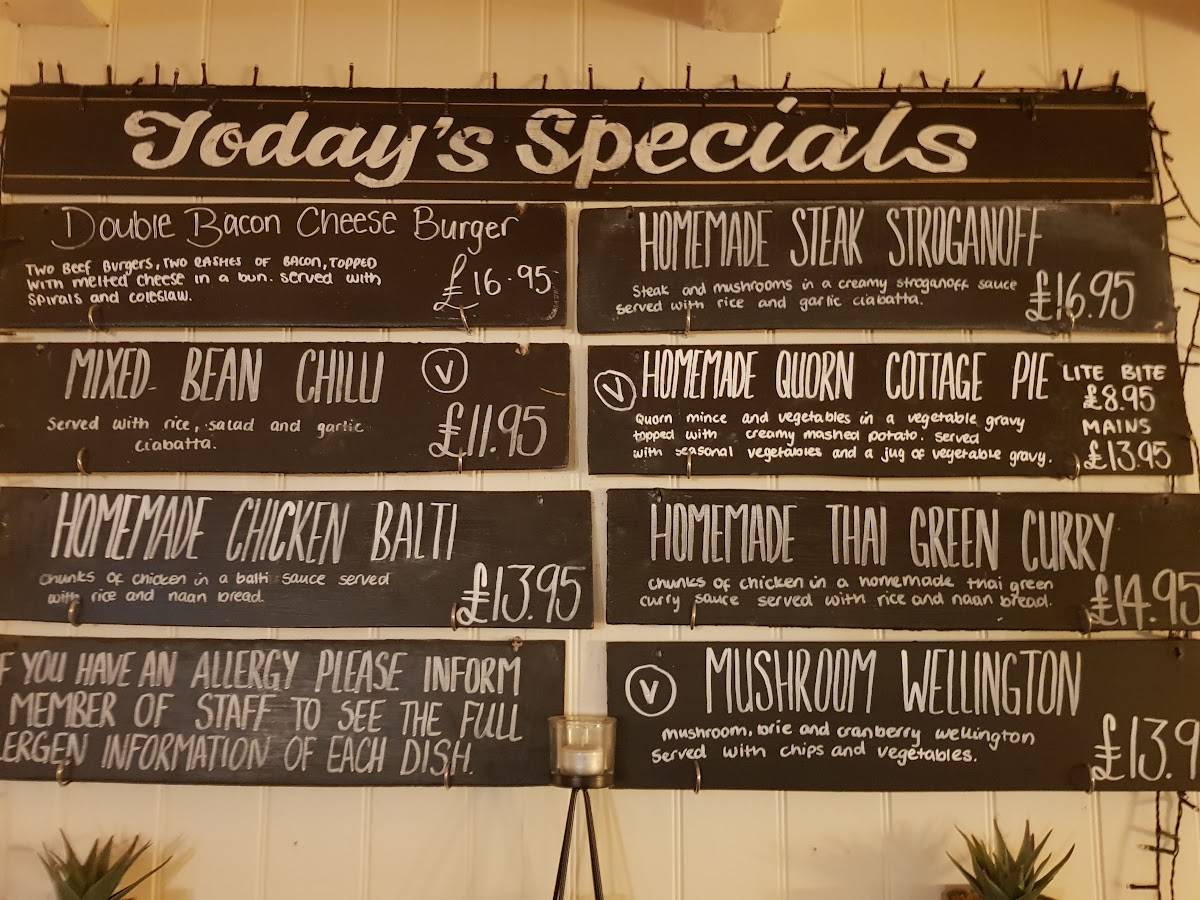 Today's Specials
Double Bacon Cheese Burger
Two Beef Burgers, two rashes of bacon, topped
with melted cheese in a bun. served with
spirals and coleslaw.
£16.95
HOMEMADE STEAK STROGANOFF
Steak and mushrooms in a creamy stroganoff sauce
served with rice and garlic ciabatta.
£16.95
MIXED BEAN CHILLI
V
Served with rice, salad and garlic
ciabatta.
£11.95
V
HOMEMADE QUORN COTTAGE PIE
Quorn mince and vegetables in a vegetable gravy
topped with creamy mashed potato. served
with seasonal vegetables and a jug of vegetable gravy.
LITE BITE
£8.95
MAINS
£13.95
HOMEMADE CHICKEN BALTI
chunks of chicken in a balti sauce served
with rice and naan bread.
£13.95
HOMEMADE THAI GREEN CURRY
chunks of chicken in a homemade thai green
curry sauce served with rice and naan bread.
£14.95
F YOU HAVE AN ALLERGY PLEASE INFORM
MEMBER OF STAFF TO SEE THE FULL
LERGEN INFORMATION OF EACH DISH.
V
MUSHROOM WELLINGTON
mushroom, brie and cranberry wellington
served with chips and vegetables.
£13.9